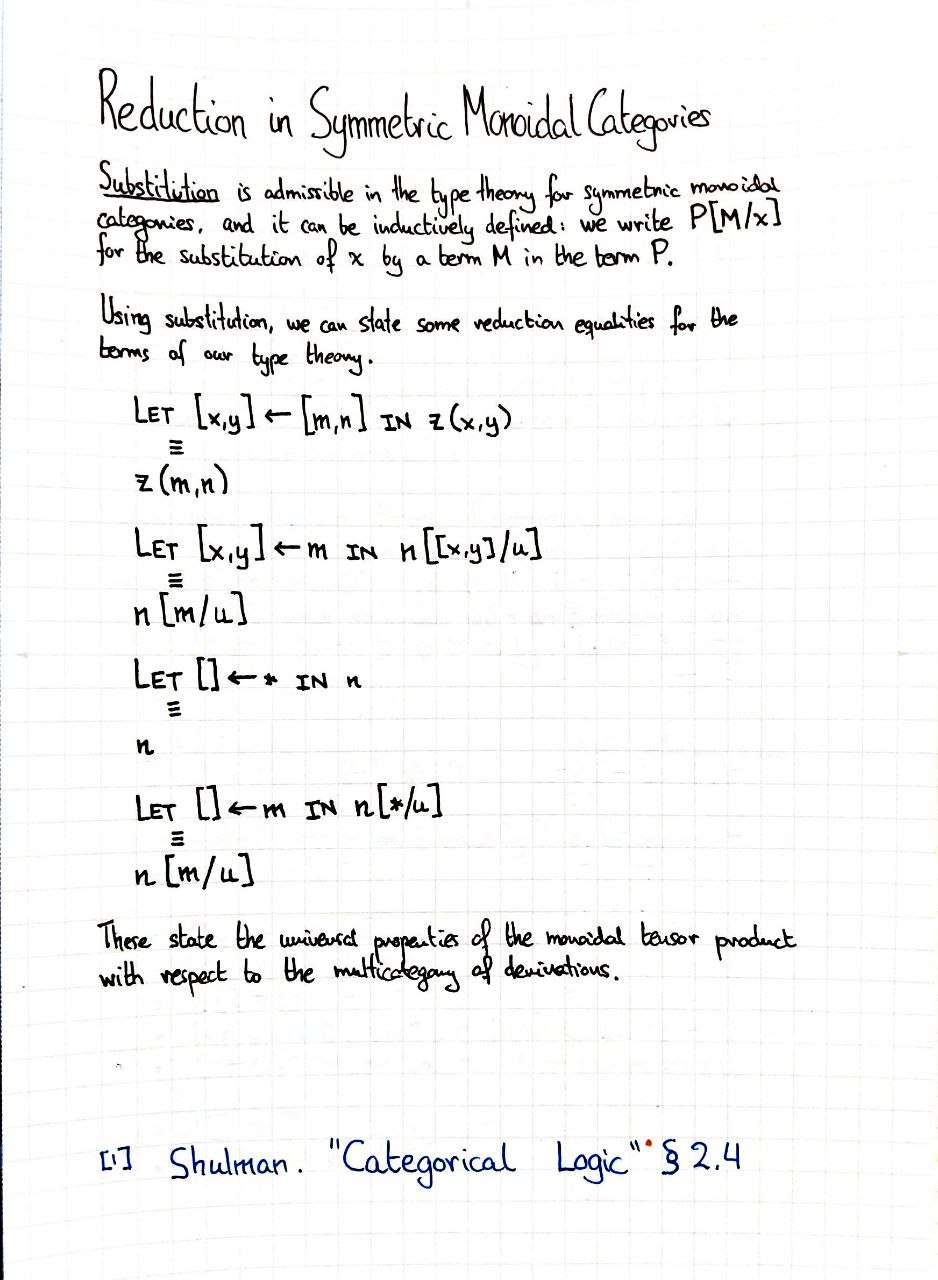 Reduction in Symmetric Monoidal Categories
Substitution is admissible in the type theory for symmetric monoidal
categories, and it can be inductively defined: we write P[M/x]
for the substitution of x by a term M in the term P.
Using substitution, we can state some reduction equalities for the
terms of our type theory.
LET [x,y] ← [m,n] IN z(x,y)
≡
z(m,n)
LET [x,y] ← m IN n[[x,y]/u]
≡
n[m/u]
LET [] ← * IN n
≡
n
LET [] ← m IN n[*/u]
≡
n[m/u]
These state the universal properties of the monoidal tensor product
with respect to the multicategory of derivations.
[1] Shulman. "Categorical Logic" § 2.4